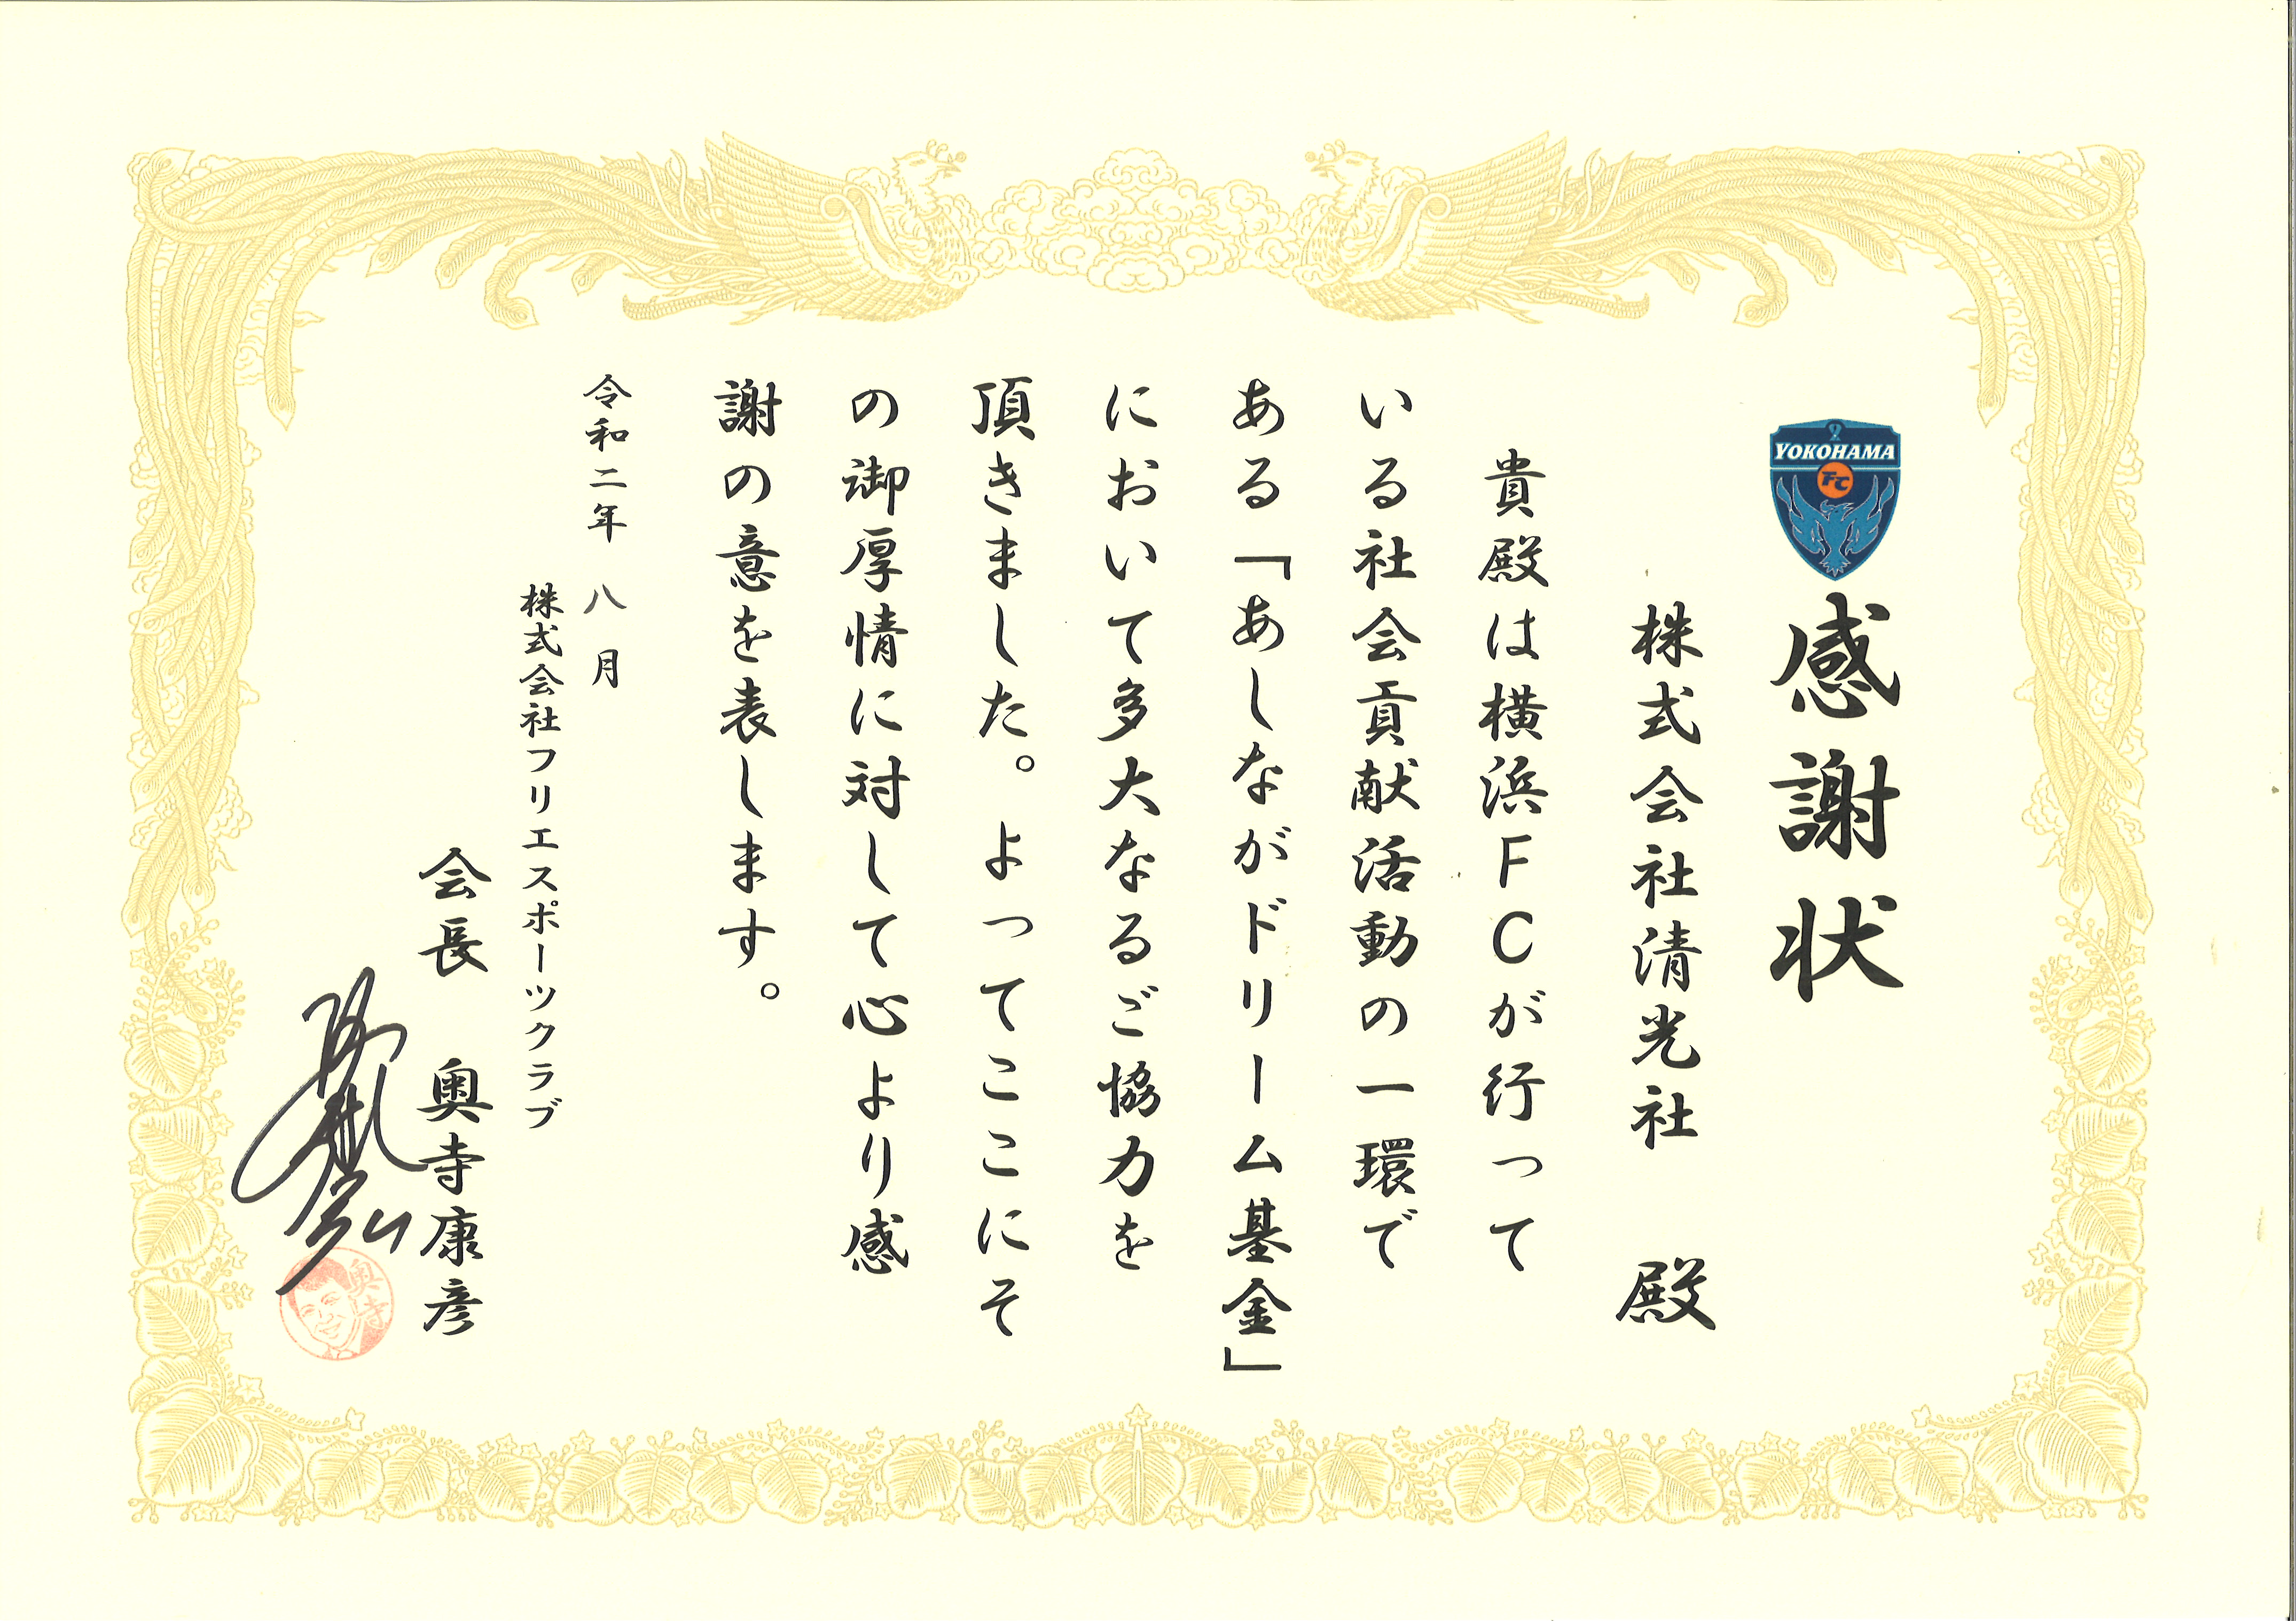 YOKOHAMA
FC
感謝状
株式会社清光社 殿
貴殿は横浜FCが行って
いる社会貢献活動の一環で
ある「あしながドリーム基金」
において多大なるご協力を
頂きました。よってここにそ
の御厚情に対して心より感
謝の意を表します。
令和二年 八月
株式会社フリエスポーツクラブ
会長 奥寺康彦
奥寺